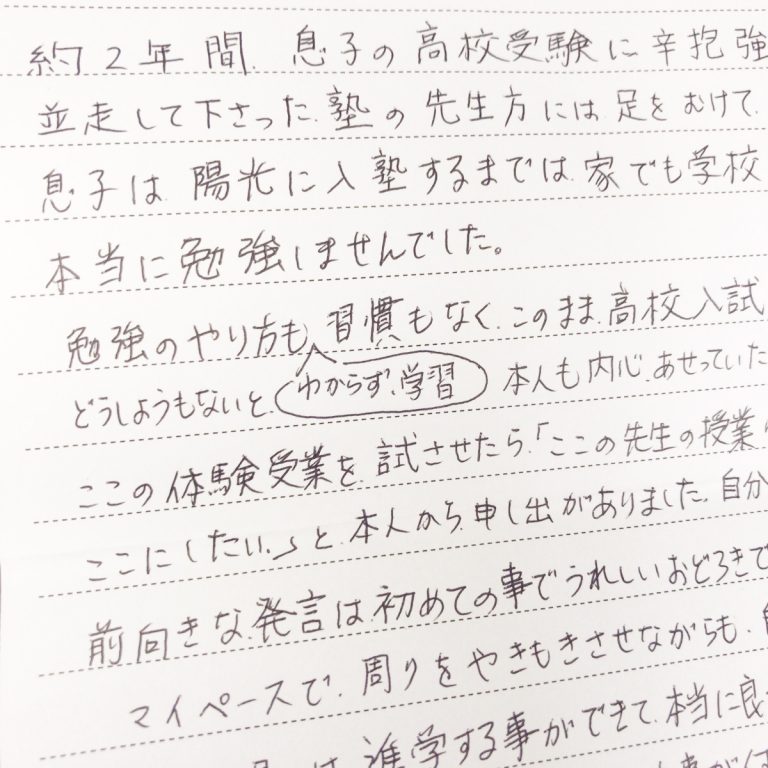 約2年間、息子の高校受験に辛抱強
並走して下さった、塾の先生方には、足をむけて、
息子は、陽光に入塾するまでは、家でも学校
本当に勉強しませんでした。
勉強のやり方も、わからず、学習習慣もなく、このまま、高校入試
どうしようもないと、本人も内心、あせっていた
ここの体験受業を試させたら、「ここの先生の授業
ここにしたい。」と、本人から、申し出がありました。自分
前向きな発言は、初めての事でうれしいおどろきで
マイペースで、周りをやきもきさせながらも、
は、進学する事ができて、本当に良